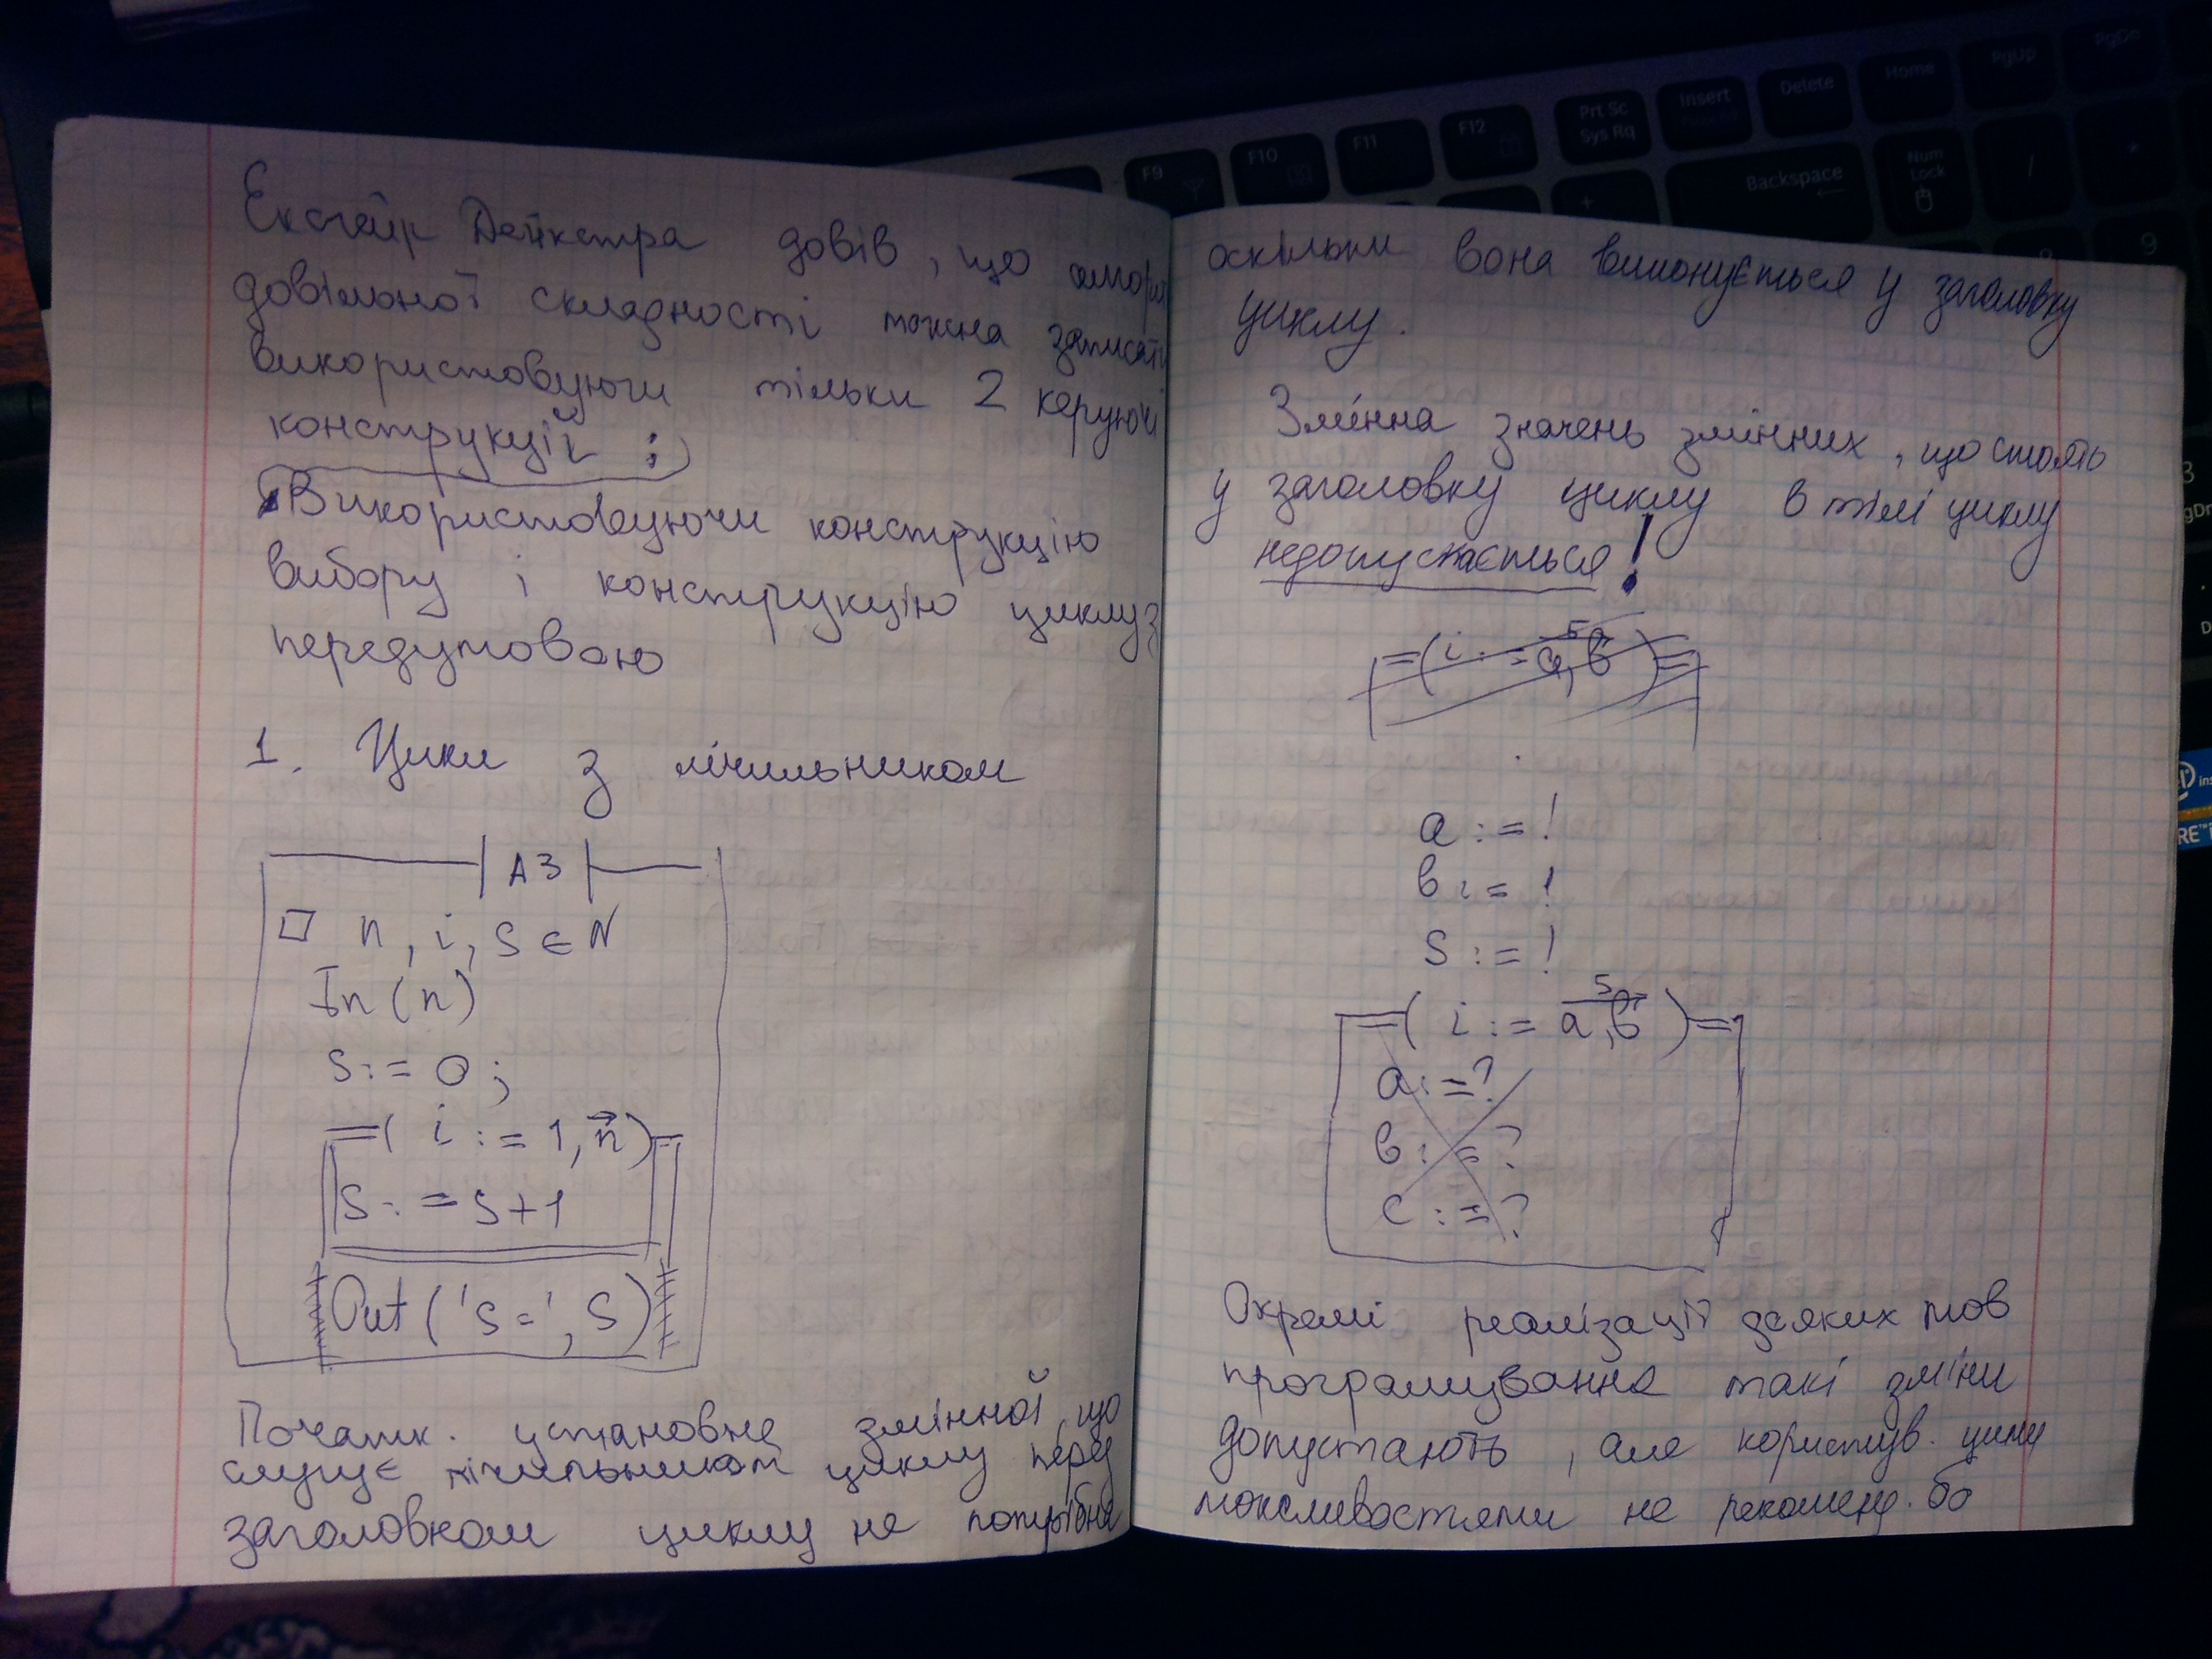 Екстейр Дейкстра довів, що алгори
довільної складності можна записати
використовуючи тільки 2 керуючі
конструкцій :
Використовуючи конструкцію
вибору і конструкцію циклу з
передумовою
1. Цикли з лічильником
АЗ
n, i, S ∈ N
In (n)
S := 0 ;
=( i := 1, n )=
S := S + 1
Out ( 'S =', S )
Початк. установка змінної що
слугує лічильником циклу перед
заголовком циклу не потрібна
оскільки вона виконується у заголовку
циклу.
Змінна значень змінних, що стоять
у заголовку циклу в тілі циклу
недопускається!
=( i := a, b )=
a := !
b := !
S := !
S
=( i := a, b )=
a := ?
b := ?
c := ?
Окремі реалізації деяких мов
програмування такі зміни
допустають, але користув. цими
можливостями не рекоменд. бо
F9
F10
F11
F12
Prt Sc
Sys Rq
Insert
Delete
Home
PgUp
PgDn
Backspace
Num
Lock
+
/
*
9
3